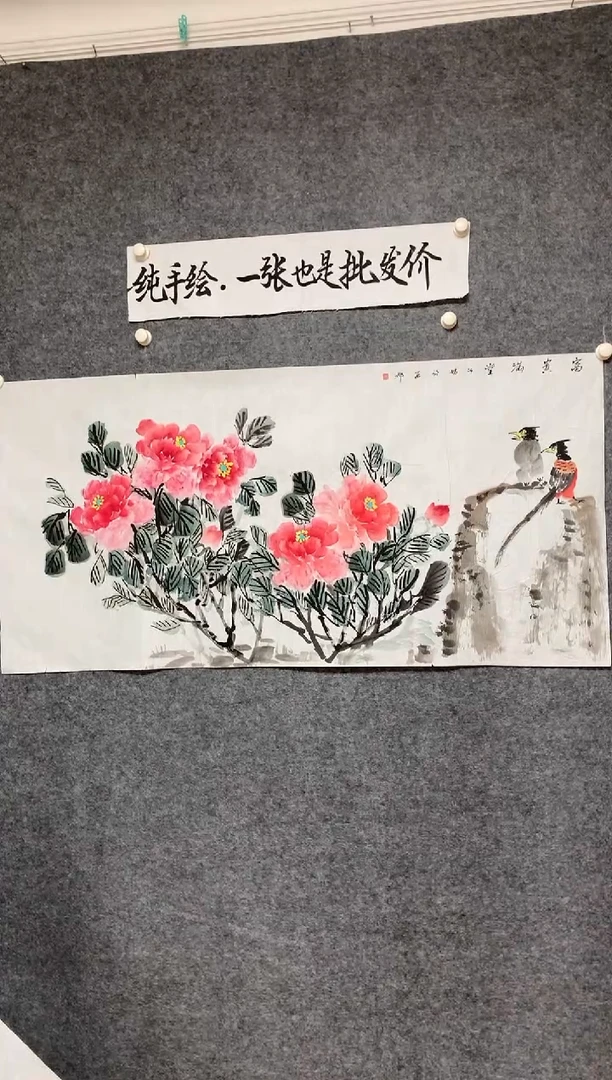 纯手绘.一张也是批发价
富贵满堂